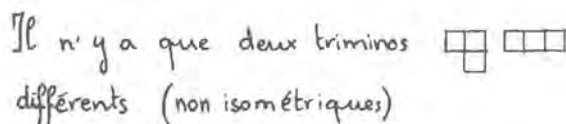 Il n'y a que deux triminos
différents (non isométriques)